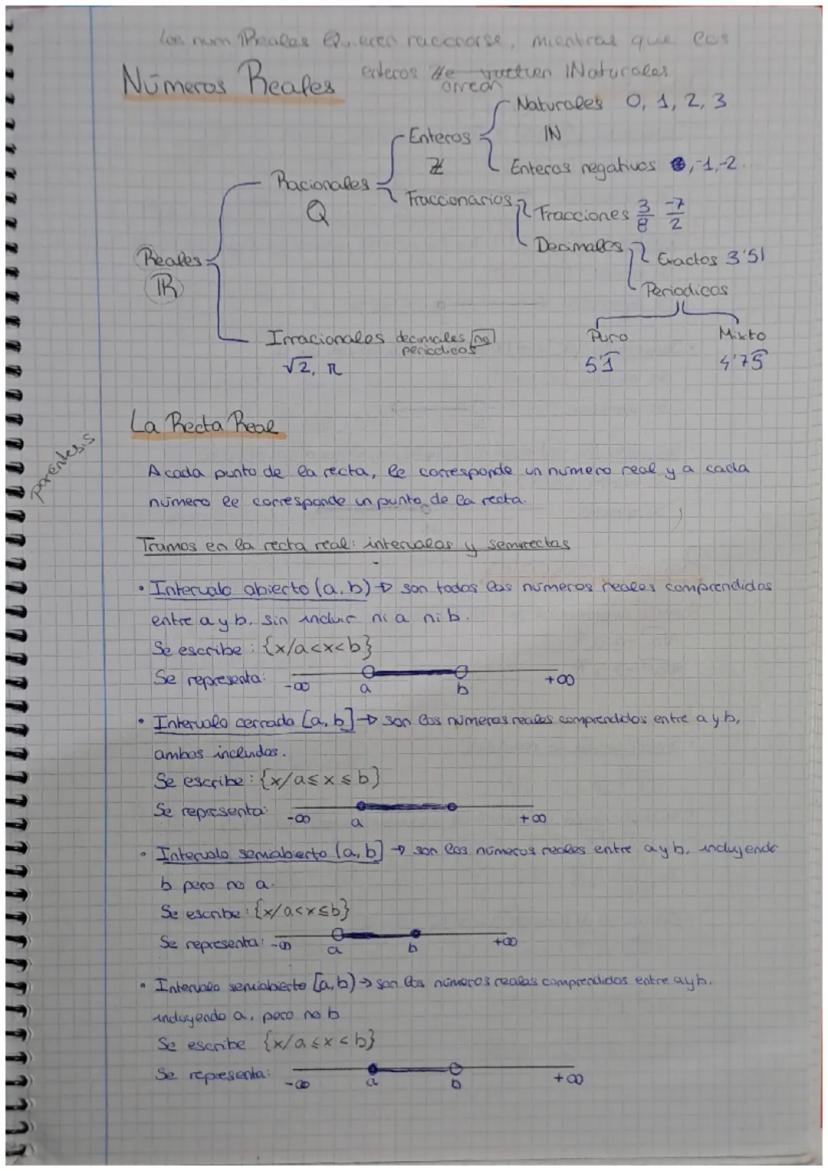 Los num Reales Quieren racionarse, mientras que los
enteros se vuelven Naturales
Números Reales
Naturales 0, 1, 2, 3
Enteros
IN
Z
Enteros negativos , -1, -2.
Racionales
Q
Fraccionarios
Fracciones 3/8 -7/2
Decimales
Exactos 3'51
Reales
IR
Periodicos
Irracionales decimales no
periodicos
Puro
Mixto
√2, π
5'1̅
4'75̅
La Recta Real
parentesis
A cada punto de la recta, le corresponde un numero real y a cada
número le corresponde un punto de la recta.
Tramos en la recta real: intervalos y semirrectas
• Intervalo abierto (a, b) → son todos los numeros reales comprendidos
entre a y b, sin incluir ni a ni b.
Se escribe: {x/a<x<b}
Se representa: -∞ a b +∞
• Intervalo cerrado [a, b] → son los números reales comprendidos entre a y b,
ambos incluidos.
Se escribe: {x/a≤x≤b}
Se representa: -∞ a +∞
• Intervalo semiabierto (a, b] → son los números reales entre a y b, incluyendo
b pero no a.
Se escribe: {x/a<x≤b}
Se representa: -∞ a b +∞
• Intervalo semiabierto [a, b) → son los números reales comprendidos entre a y b.
incluyendo a, pero no b
Se escribe {x/a≤x<b}
Se representa: -∞ a b +∞